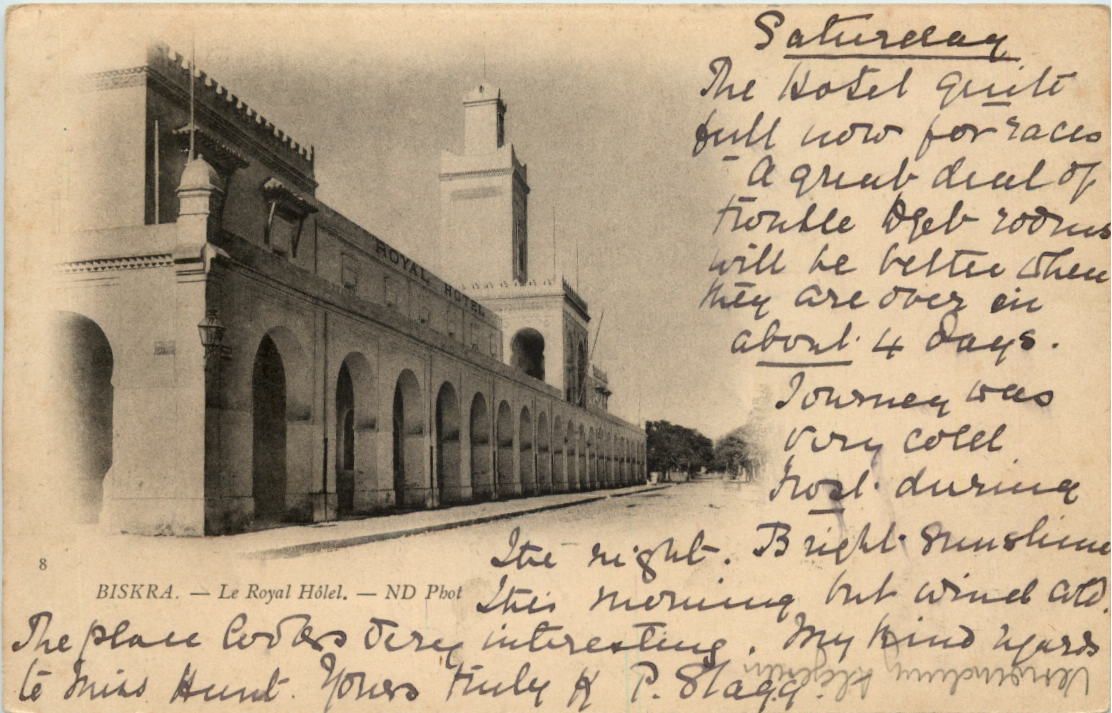 Saturday
The Hotel quite
full now for races
A great deal of
trouble to get rooms
will be better when
they are over in
about 4 days.
Journey was
very cold
Frost during
the night. Bright sunshine
this morning but wind cold.
The place looks very interesting. My kind regards
to Miss Hunt. Yours truly P. Stagg.
ROYAL HOTEL
8
BISKRA. — Le Royal Hôlel. — ND Phot